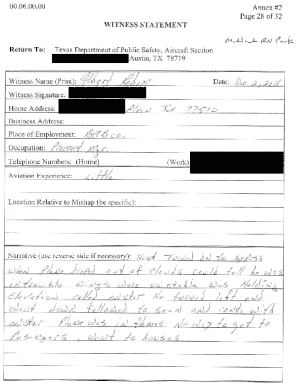 00.06.00.00
Annex #2
Page 28 of 32
WITNESS STATEMENT
Return To: Texas Department of Public Safety, Aircraft Section
Austin, TX 78719
Witness Name (Print): Albert Date: Dec 2, 2011
Witness Signature:
Home Address: Alvin TX 77510
Business Address:
Place of Employment:
Occupation: Mgr.
Telephone Numbers: (Home) (Work)
Aviation Experience: Little
Location Relative to Mishap (be specific):
Narrative (use reverse side if necessary): Just Turned on to
when Plane out of clouds could tell he was
in trouble Wings were unstable was Holding
Elevation called He turned left and
went down followed to scene and with
Plane was in flames No way to get to
Passengers, went to houses.